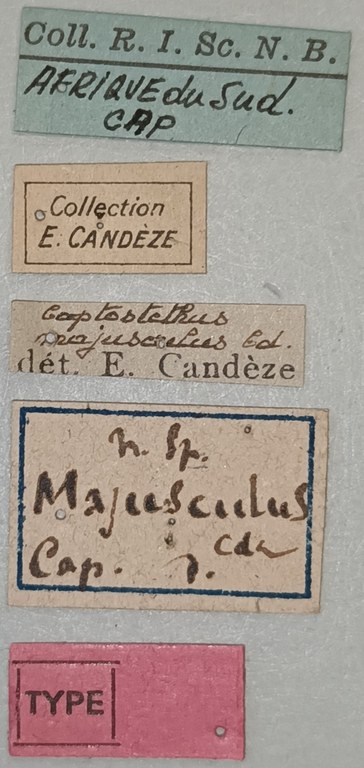 Coll. R. I. Sc. N. B.
AFRIQUE du Sud.
CAP
Collection
E. CANDÈZE
Captostethus
majusculus Cd.
dét. E. Candèze
n. Sp.
Majusculus
Cdz
Cap.
TYPE